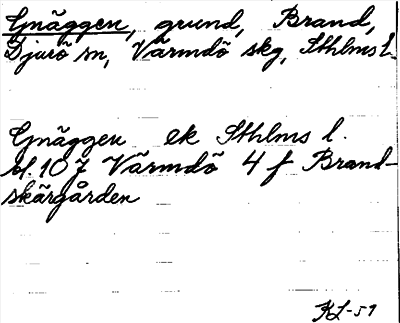 Gnäggen, grund, Brand,
Djurö sn, Värmdö skg, Sthlms l.
Gnäggen ek Sthlms l.
bl. 107 Värmdö 4 f Brand-
skärgården
KL-59